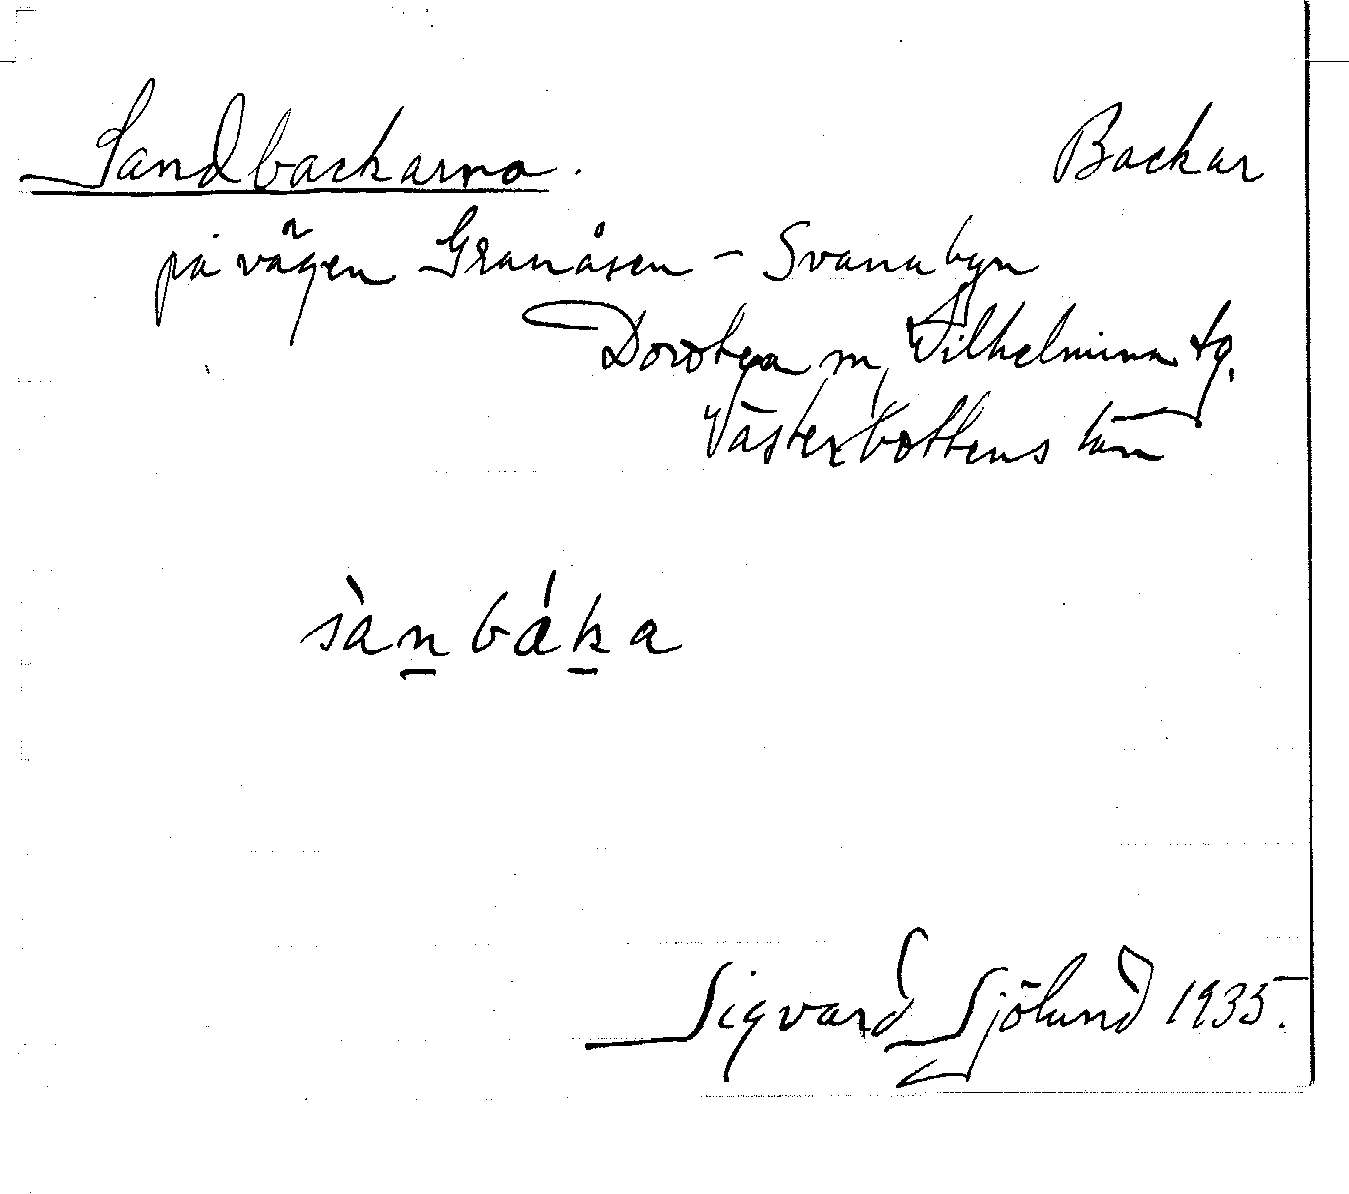 Sandbackarna. Backar
på vägen Granåsen - Svanabyn
Dorotea m, Vilhelmina tg.
Västerbottens län
sànbáka
Sigvard Sjölund 1935.